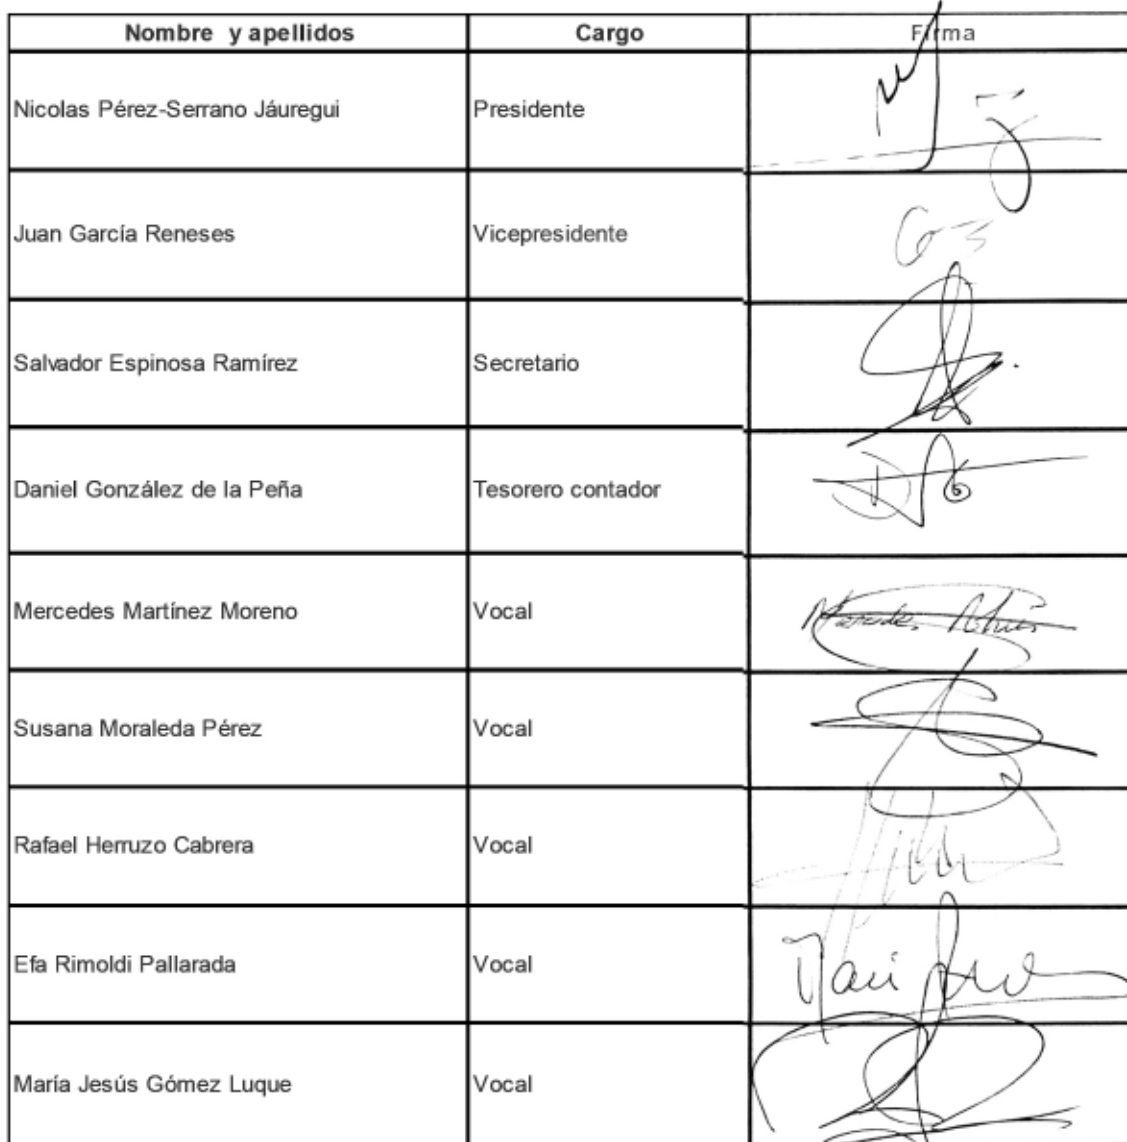 Nombre y apellidos Cargo Firma
Nicolas Pérez-Serrano Jáuregui Presidente
Juan García Reneses Vicepresidente
Salvador Espinosa Ramírez Secretario
Daniel González de la Peña Tesorero contador
Mercedes Martínez Moreno Vocal
Susana Moraleda Pérez Vocal
Rafael Herruzo Cabrera Vocal
Efa Rimoldi Pallarada Vocal
María Jesús Gómez Luque Vocal